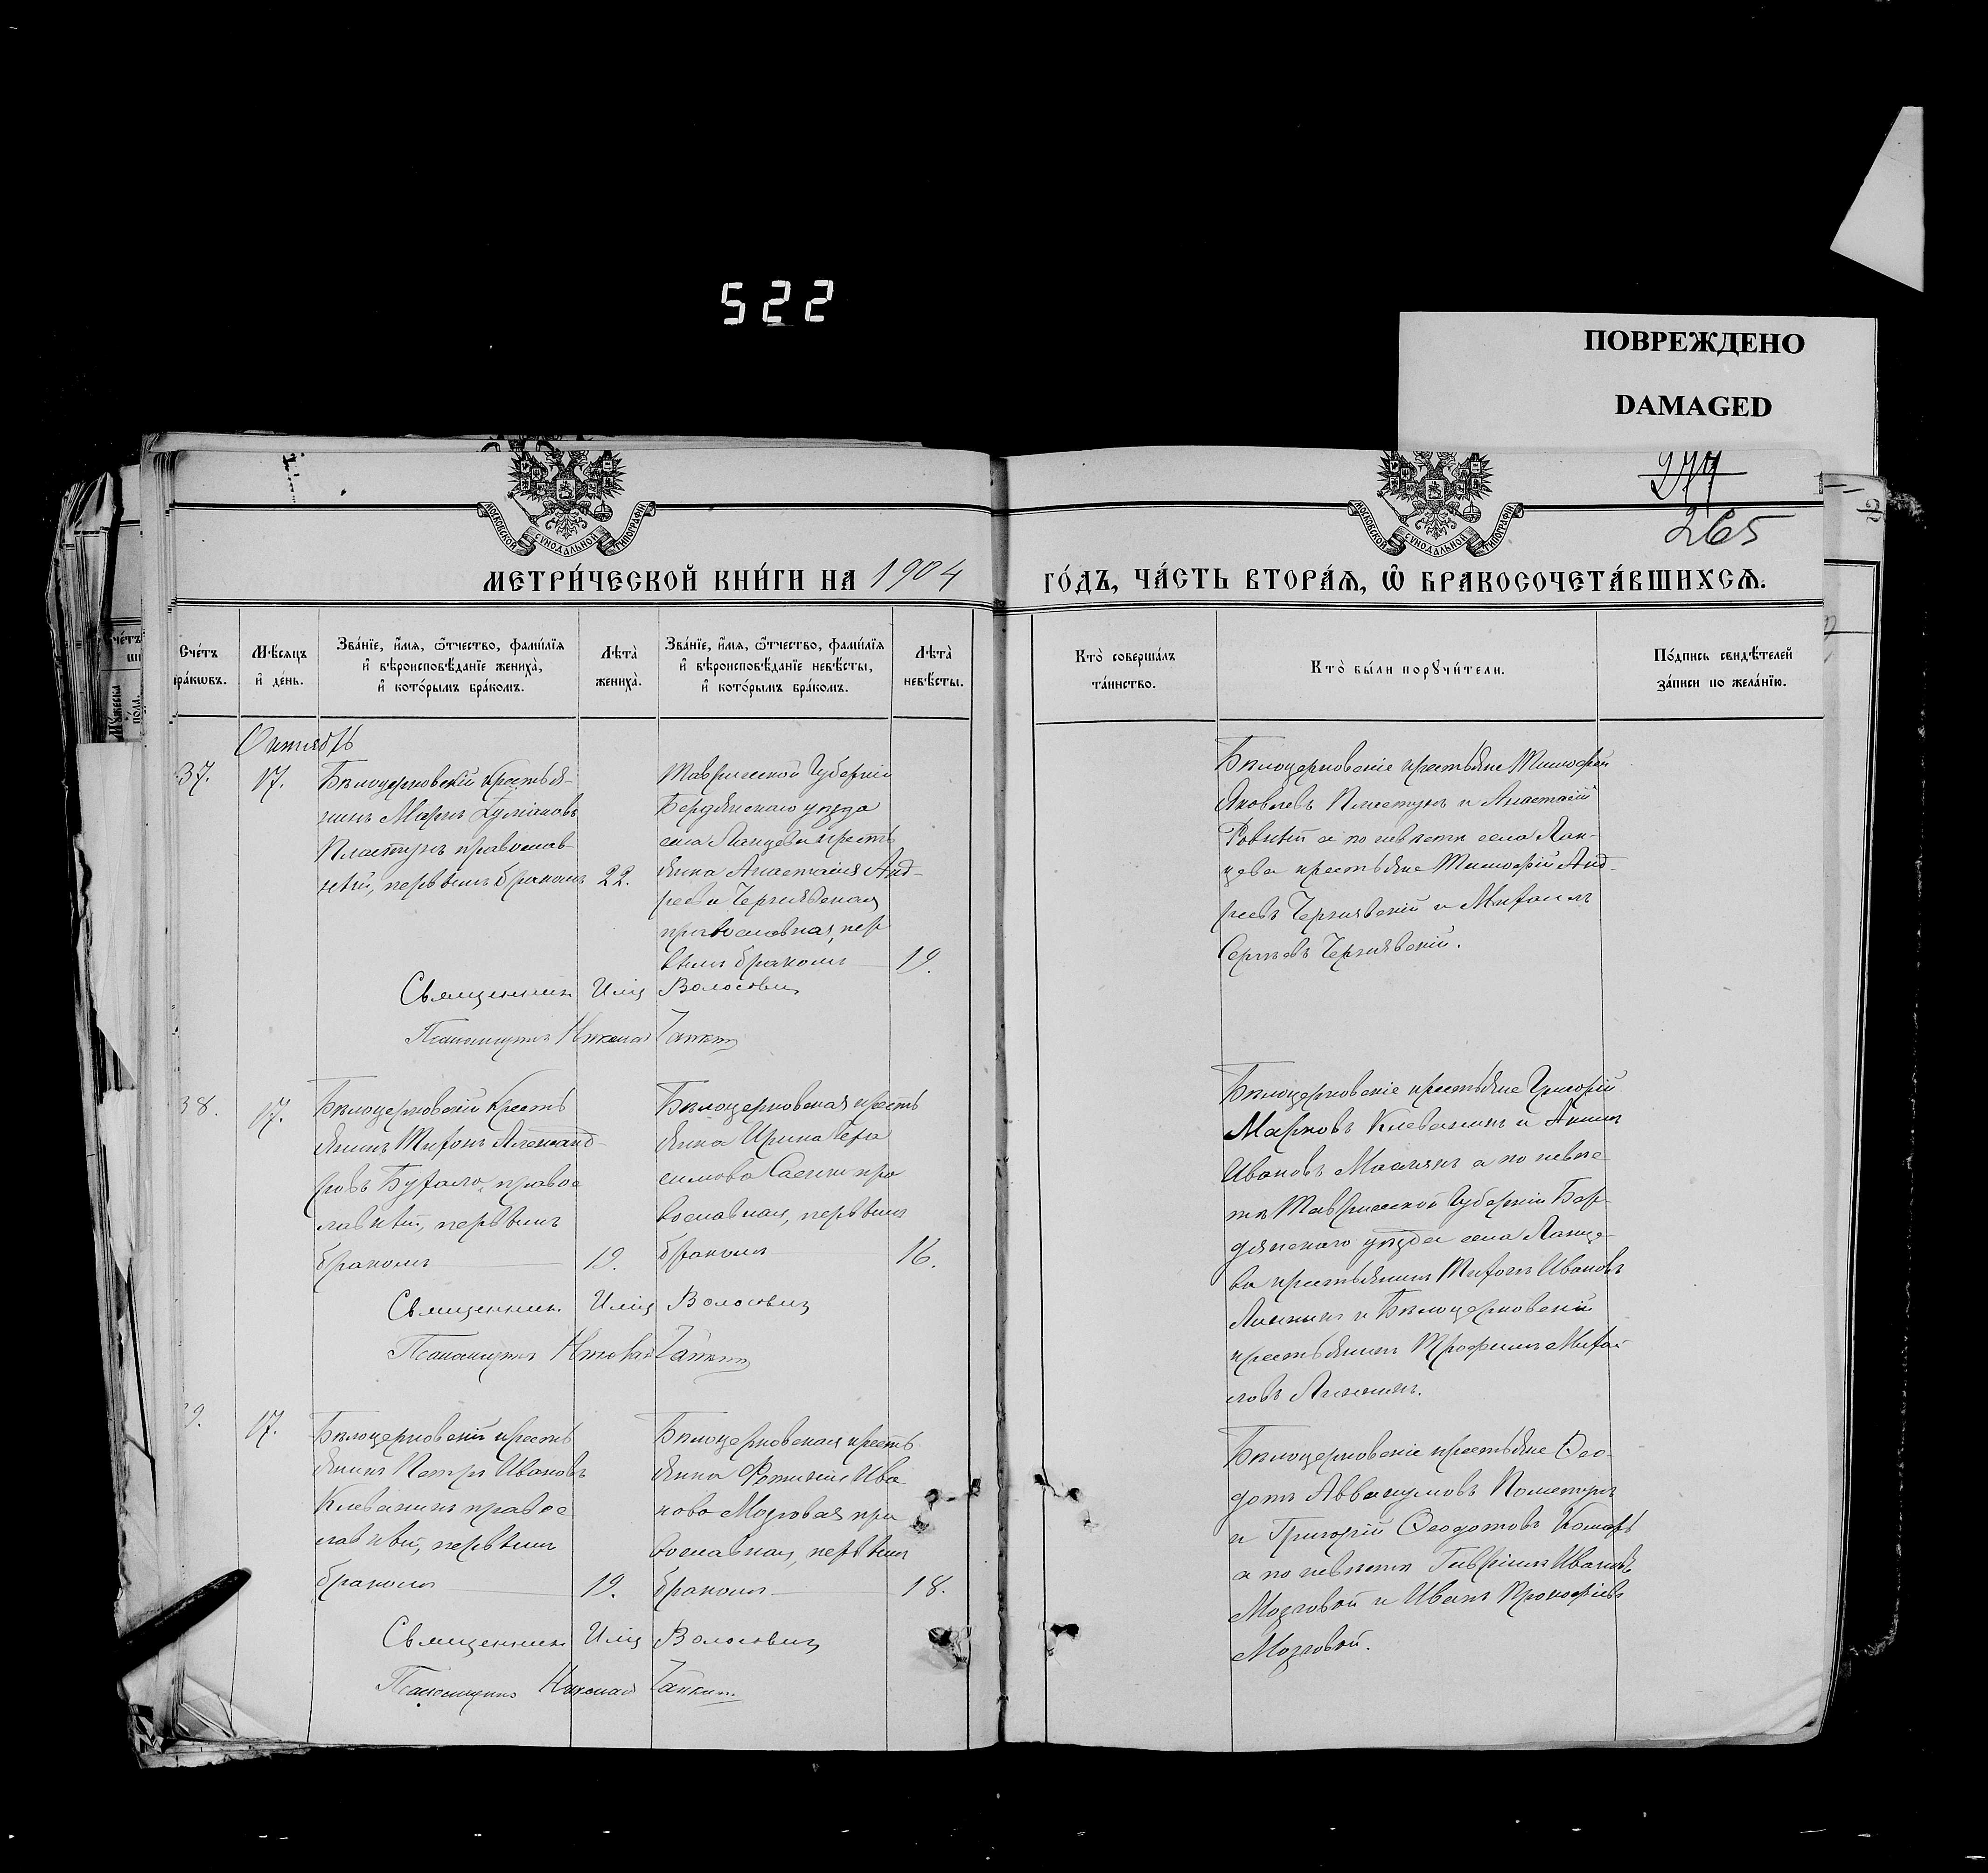 522
ПОВРЕЖДЕНО
DAMAGED
277
265
МОСКОВСКОЙ СѴНОДАЛЬНОЙ ТИПОГРАФІИ
МОСКОВСКОЙ СѴНОДАЛЬНОЙ ТИПОГРАФІИ
МЕТРИ́ЧЕСКОЙ КНИ́ГИ НА 1904
ГО́ДЪ, ЧА́СТЬ ВТОРА́Ѧ, Ѽ БРАКОСОЧЕТА́ВШИХСѦ.
Сче́тъ бра́кѡвъ.
Мѣ́сѧцъ и҆ де́нь.
Зва́нїе, и҆́мѧ, ѻ҆́тчество, фами́лїѧ
и҆ вѣроисповѣ́данїе жениха̀,
и҆ кото́рымъ бра́комъ.
Лѣ́та жениха̀.
Зва́нїе, и҆́мѧ, ѻ҆́тчество, фами́лїѧ
и҆ вѣроисповѣ́данїе невѣ́сты,
и҆ кото́рымъ бра́комъ.
Лѣ́та невѣ́сты.
Кто̀ соверша́лъ
та́инство.
Кто̀ бы́ли порꙋчи́тели.
По́дпись свидѣ́телей
за́писи по жела́нїю.
Октябрь
37.
17.
Бѣлоцерковскій крестья-
нинъ Маркъ
Пластунъ православ-
ный, первымъ бракомъ
22.
Таврической Губерніи
Бердянскаго уѣзда
села Ланцева кресть
янка Анастасія Анд-
реева Чернявская
православная, пер
вымъ бракомъ
19.
Священникъ Илія Волосевич
Псаломщикъ Николай
Бѣлоцерковскіе крестьяне Тимофей
Яковлевъ Пластунъ и Анастасій
а по невѣсти села Лан-
цева крестьяне Тимофій Анд-
реевъ Чернявскій и Михаилъ
Сергѣевъ Чернявскій.
38.
17.
Бѣлоцерковскій кресть
янинъ Тихонъ Александ-
ровъ Бухало, правос
лавный, первымъ
бракомъ
19.
Бѣлоцерковская кресть
янка Ирина Гера
симова Саенко пра
вославная, первымъ
бракомъ
16.
Священникъ Илія Волосевич
Псаломщикъ Николай
Бѣлоцерковскіе крестьяне Григорій
Марковъ Клеванникъ и
Ивановъ а по невѣс
тѣ Таврической Губерніи Бер-
дянскаго уѣзда села Ланце-
ва крестьянинъ Тихонъ Ивановъ
и Бѣлоцерковскій
крестьянинъ Трофимъ Михай
ловъ
9.
17.
Бѣлоцерковскій кресть
янинъ Петръ Ивановъ
Клеванникъ правос
лавный, первымъ
бракомъ
19.
Бѣлоцерковская кресть
янка Фотинія Ива
нова Мозговая пра
вославная, первымъ
бракомъ
18.
Священникъ Илія Волосевич
Псаломщикъ Николай
Бѣлоцерковскіе крестьяне Ѳео-
дотъ Аввакумовъ
и Григорій Ѳеодотовъ Комаръ
а по невѣстѣ Гавріилъ Ивановъ
Мозговой и Иванъ Прокофіевъ
Мозговой.